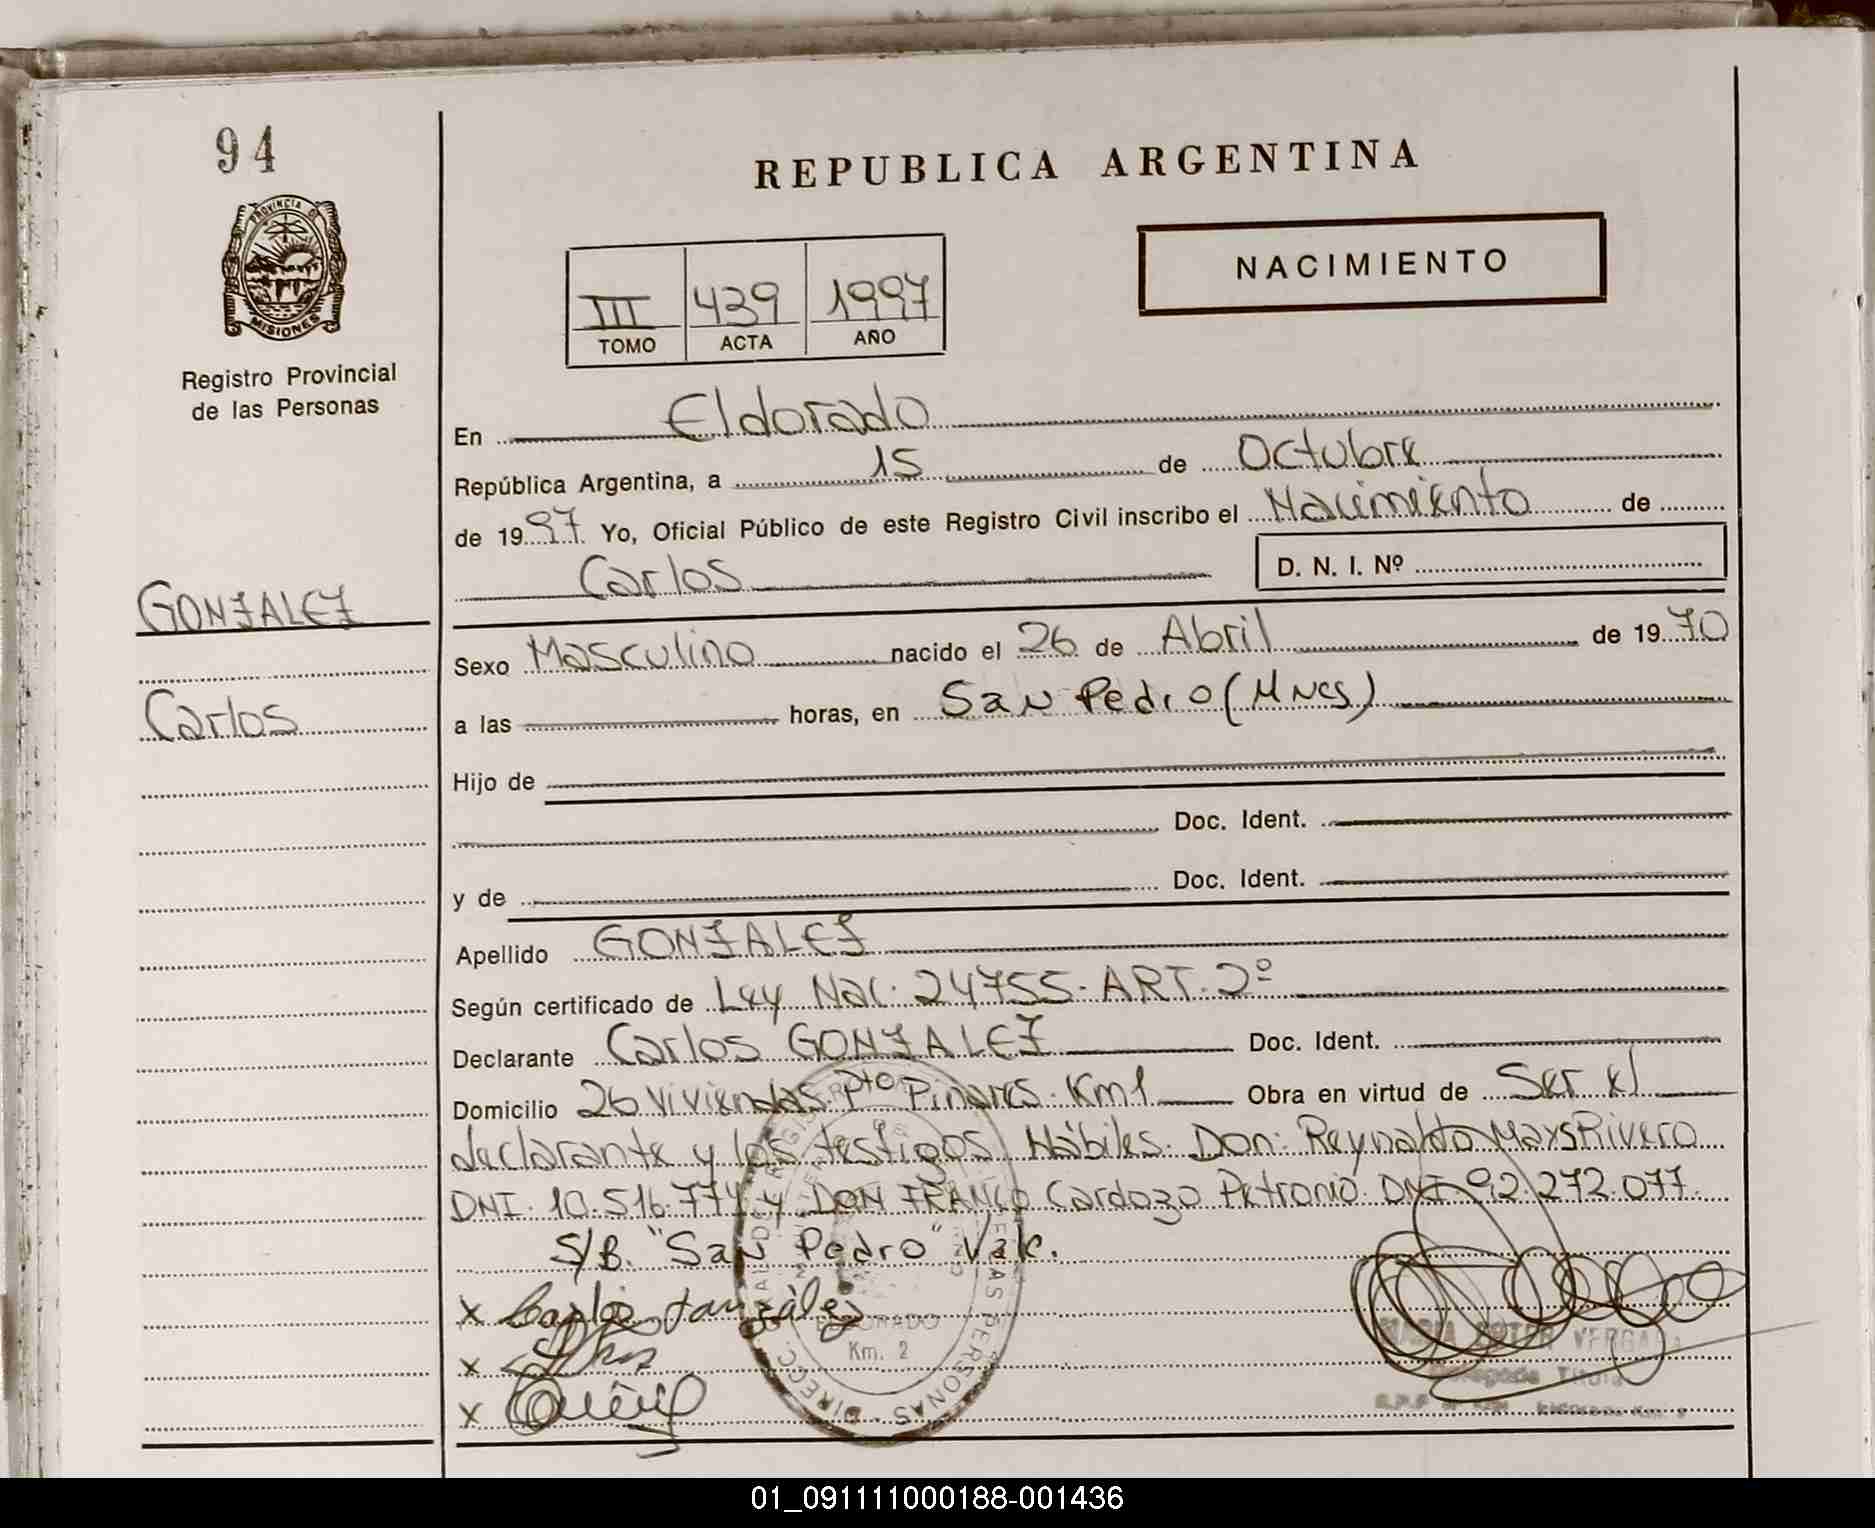 94
REPUBLICA ARGENTINA
PROVINCIA DE MISIONES
NACIMIENTO
III 439 1997
TOMO ACTA AÑO
Registro Provincial
de las Personas
En Eldorado
República Argentina, a 15 de Octubre
de 1997 Yo, Oficial Público de este Registro Civil inscribo el Nacimiento de
Carlos D. N. I. Nº
GONZALEZ
Sexo Masculino nacido el 26 de Abril de 1970
Carlos
a las horas, en San Pedro (Mnes)
Hijo de
Doc. Ident.
y de Doc. Ident.
Apellido GONZALEZ
Según certificado de Ley Nac. 24755. ART. 2º
Declarante Carlos GONZALEZ Doc. Ident.
Domicilio 26 Viviendas Pto Pinares. Km1 Obra en virtud de Ser el
declarante y los testigos Hábiles. Don: Reynaldo Rivero
DNI. y DON FRANCO Cardozo Petronio DNI 92.272.077.
S/B. "San Pedro" Vale.
x Carlos González
x
x
ELDORADO
Km. 2
PERSONAS
VERGARA
Titular
01_091111000188-001436